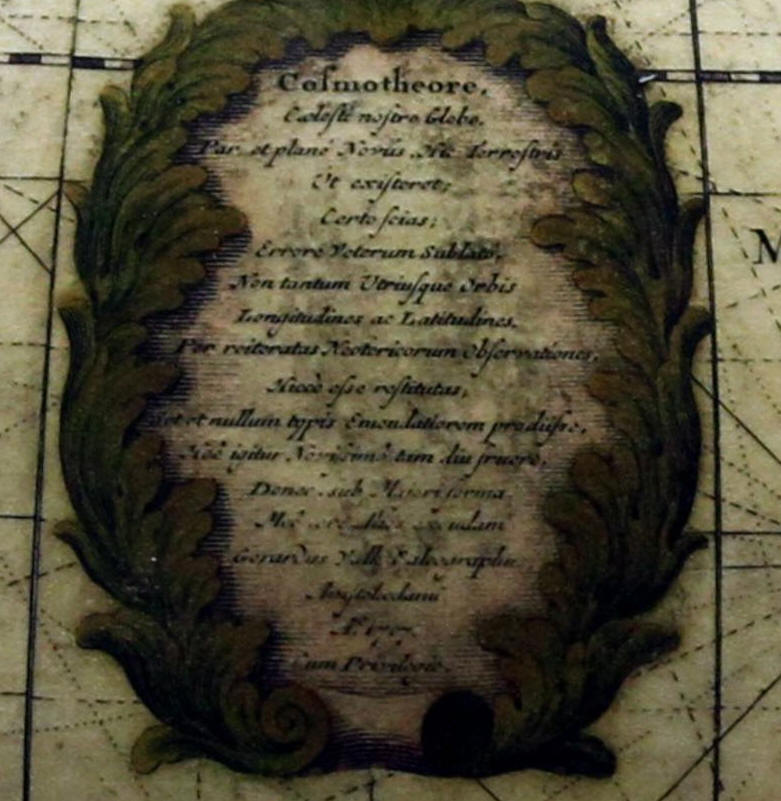 Cosmotheore,
Cœlesti nostro Globo,
Par et plané Noviis Hic Terrestris
Ut existeret;
Certo scias;
Errore Veterum Sublato,
Non tantum Utriusque Orbis
Longitudines ac Latitudines,
Per reiteratas Neotericorum Observationes,
Hicce esse restitutas;
et nullum typis Emendatiorem prodiisse,
Hoc igitur Novissimo tam diu fruere,
Donec sub Majori forma
Gerardus Valk Calcographus
Amstelodami
Aº
Cum Privilegio.
M